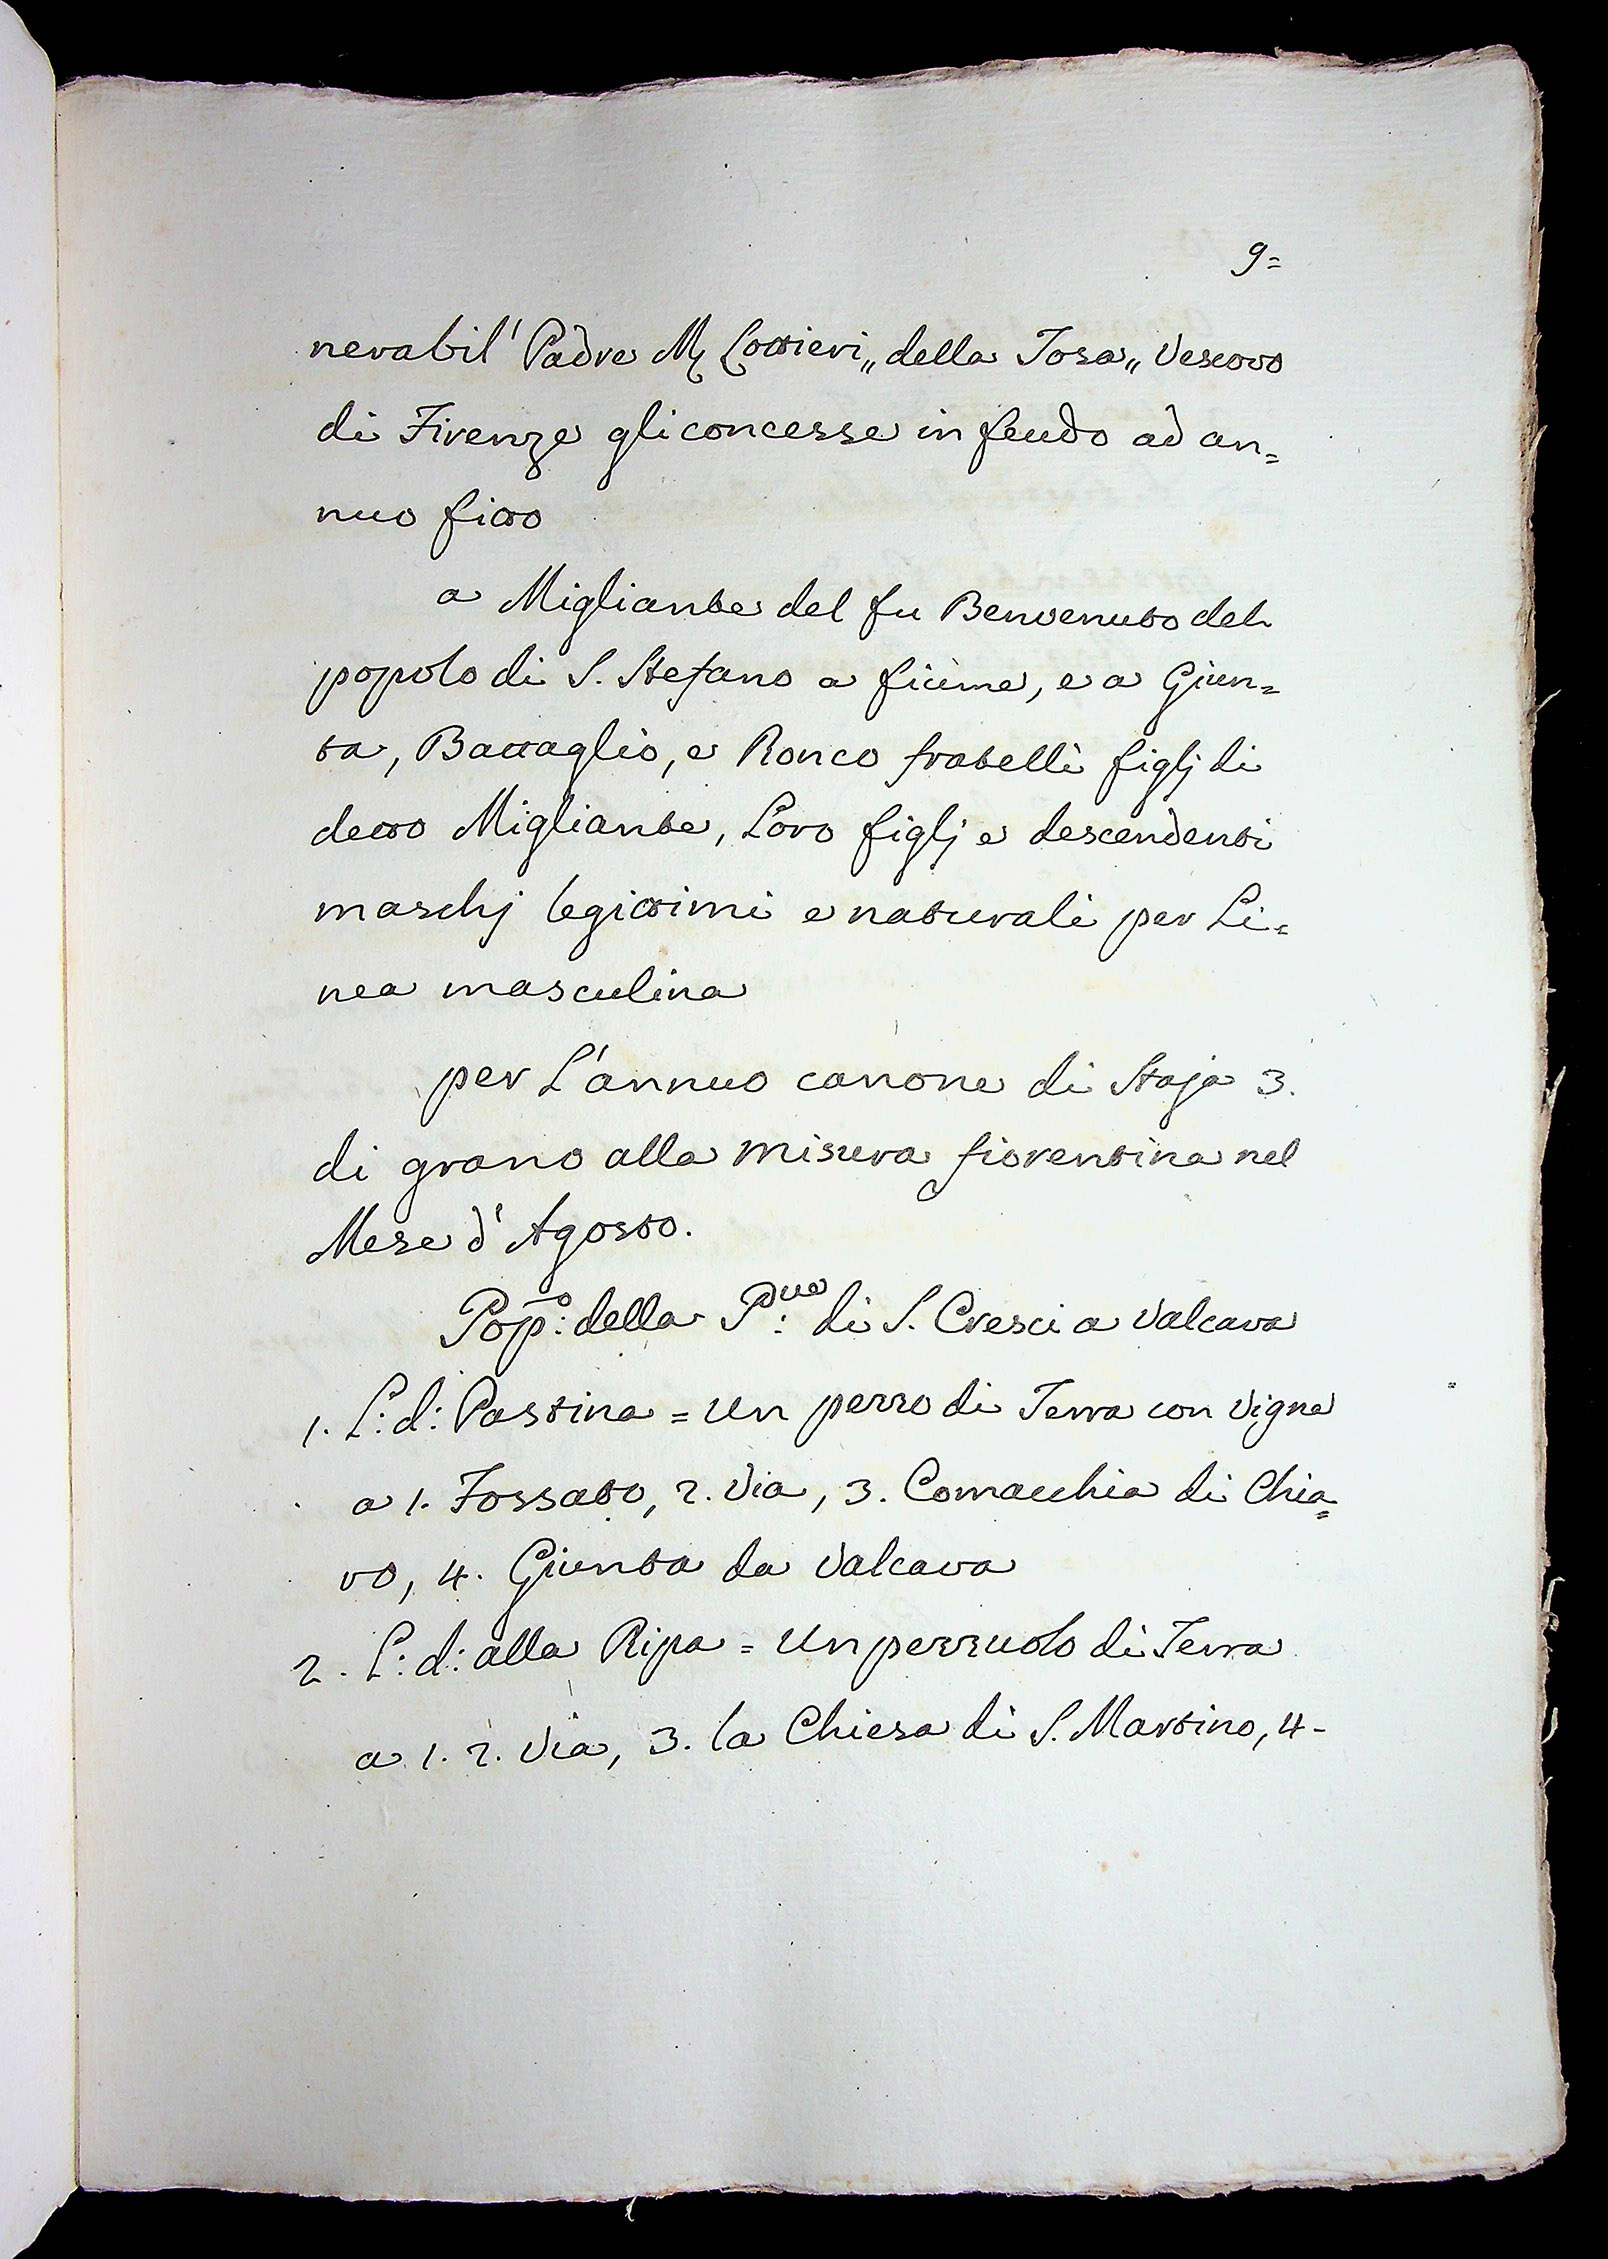 9=
nerabil' Padre M Lottieri „della Tosa„ Vescovo
di Firenze gli concesse in feudo ad an=
nuo fitto
a Migliante del fu Benvenuto del
popolo di S. Stefano a fiume, e a Giun=
ta, Battaglio, e Ronco fratelli figlj di
detto Migliante, Loro figlj e descendenti
maschj legittimi e naturali per Li=
nea masculina
per L'annuo canone di Staja 3.
di grano alla misura fiorentina nel
Mese d'Agosto.
Pop:o della P:ve di S. Cresci a Valcava
1. L: d: Pastina = Un pezzo di Terra con Vigna
a 1. Fossato, 2. Via, 3. Comacchia di Chia=
ro, 4. Giunta da Valcava
2. L: d: alla Ripa = Un pezzuolo di Terra
a 1. 2. Via, 3. la Chiesa di S. Martino, 4-